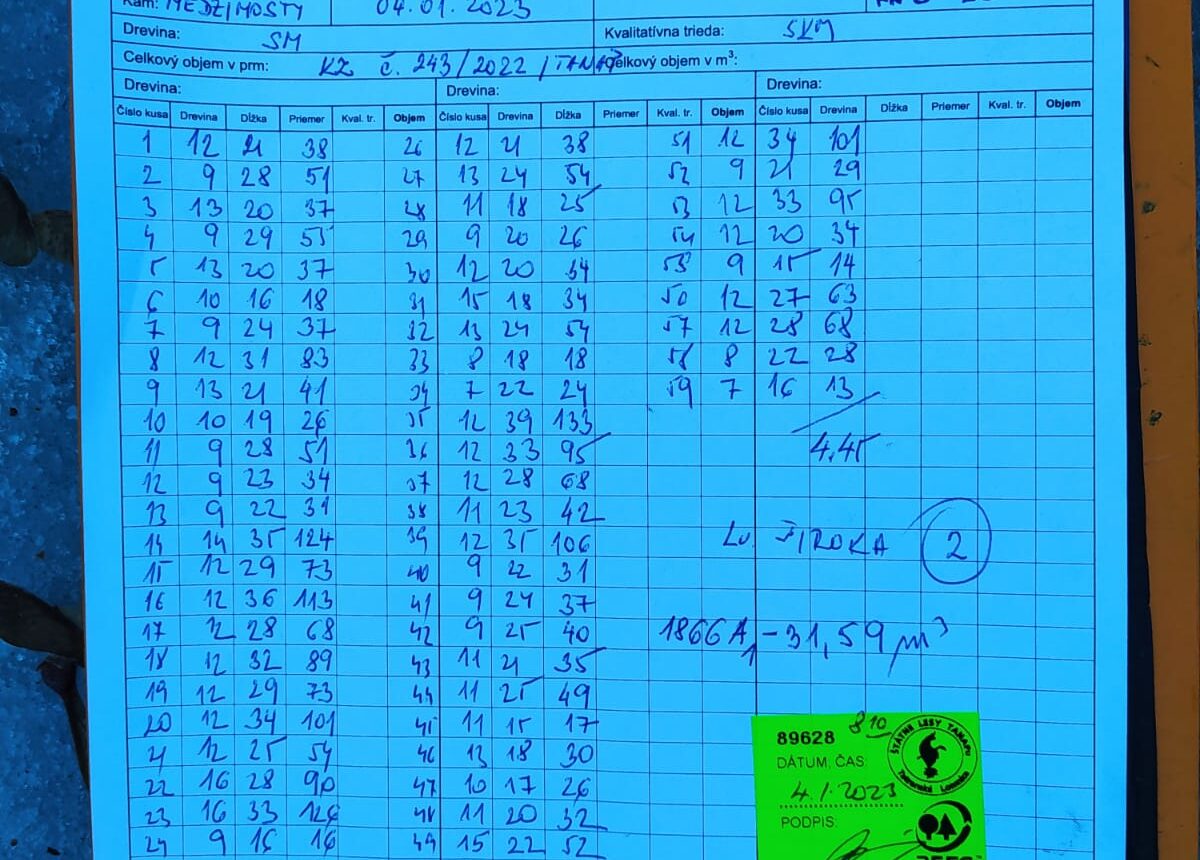 Kam: MEDZIMOSTY 04.01.2023
Drevina: SM Kvalitatívna trieda: SKM
Celkový objem v prm: KZ č. 243/2022 / TANAP Celkový objem v m³:
Drevina: Drevina: Drevina:
Číslo kusa Drevina Dĺžka Priemer Kval. tr. Objem Číslo kusa Drevina Dĺžka Priemer Kval. tr. Objem Číslo kusa Drevina Dĺžka Priemer Kval. tr. Objem
1 12 21 38 26 12 21 38 51 12 34 101
2 9 28 51 27 13 24 54 52 9 21 29
3 13 20 37 28 11 18 25 53 12 33 95
4 9 29 55 29 9 20 26 54 12 20 34
5 13 20 37 30 12 20 34 55 9 15 14
6 10 16 18 31 15 18 34 12 27 63
7 9 24 37 32 13 24 54 57 12 28 68
8 12 31 83 33 8 18 18 58 8 22 28
9 13 21 41 34 7 22 24 59 7 16 13
10 10 19 26 35 12 39 133
11 9 28 51 36 12 33 95 4,45
12 9 23 34 37 12 28 68
13 9 22 31 38 11 23 42
14 14 35 124 39 12 35 106 ŠIROKA 2
15 12 29 73 40 9 22 31
16 12 36 113 41 9 24 37
17 12 28 68 42 9 25 40 1866A1 - 31,59 m³
18 12 32 89 43 11 21 35
19 12 29 73 44 11 25 49
20 12 34 101 45 11 15 17
21 12 25 54 46 13 18 30
22 16 28 90 47 10 17 26
23 16 33 126 48 11 20 32
24 9 16 16 49 15 22 52
89628 810
DÁTUM, ČAS:
4.1.2023
PODPIS:
ŠTÁTNE LESY TANAPU
Tatranská Lomnica
PEFC